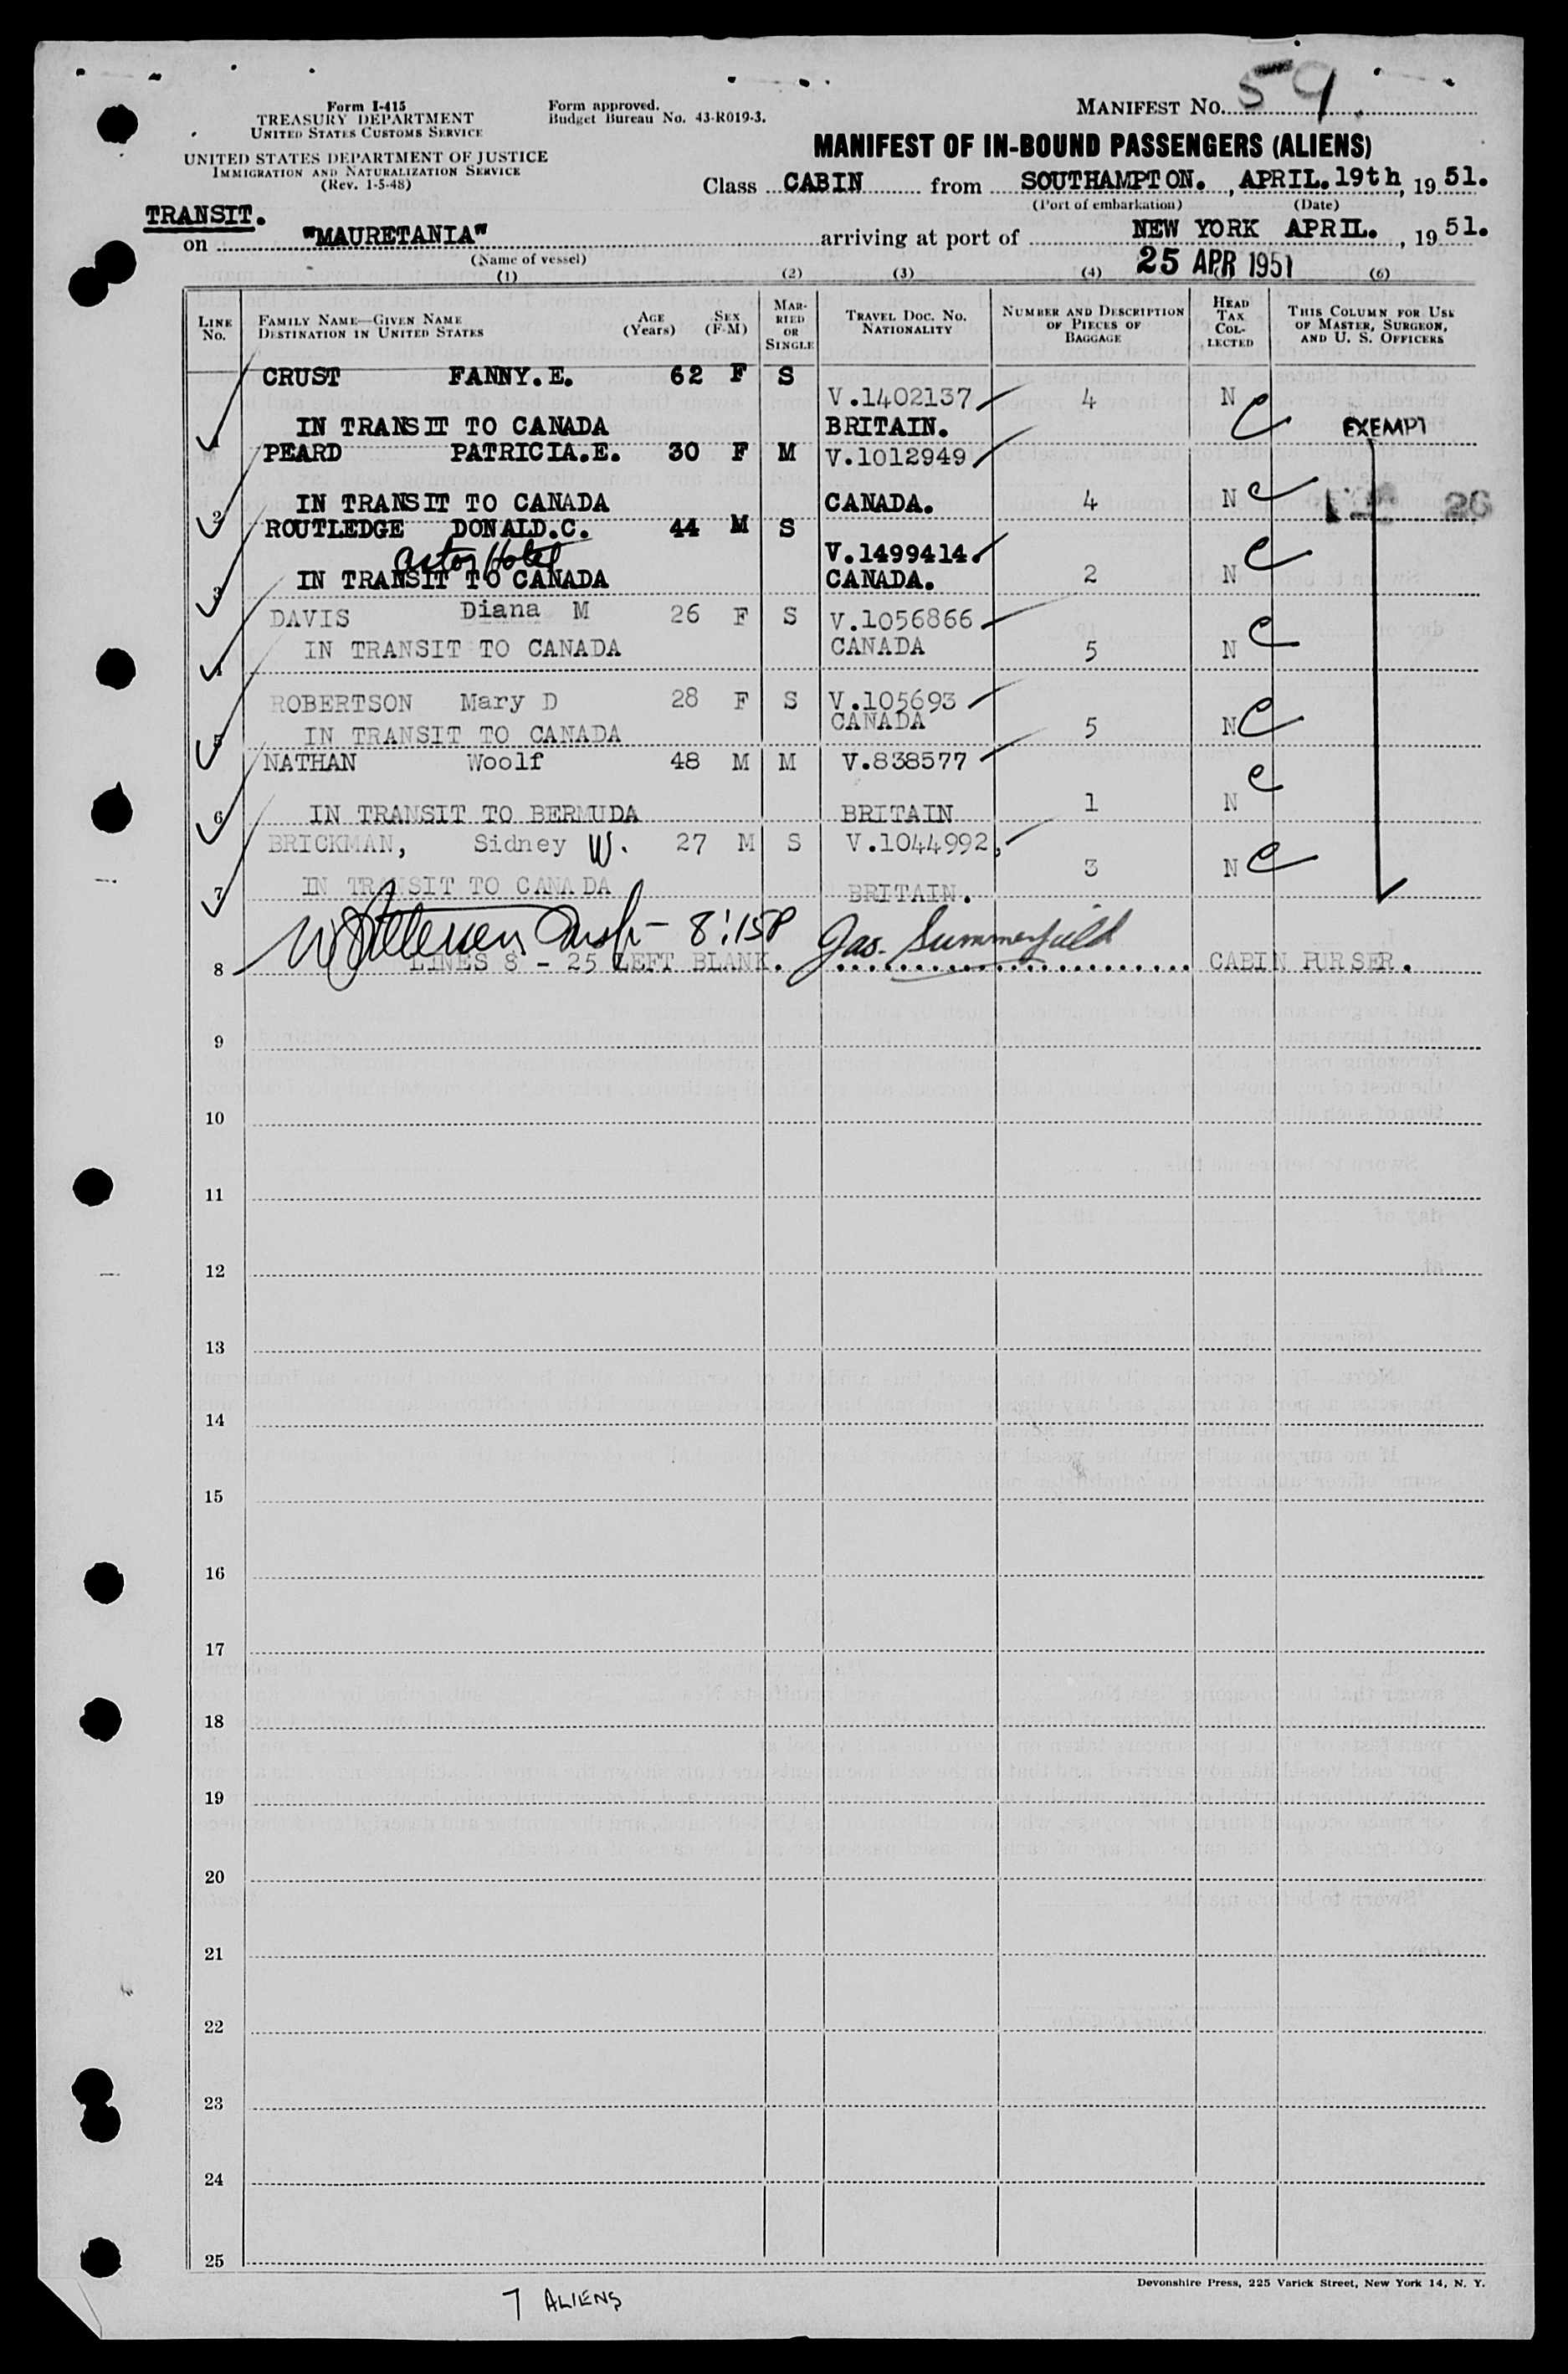 Form I-415
TREASURY DEPARTMENT
UNITED STATES CUSTOMS SERVICE
UNITED STATES DEPARTMENT OF JUSTICE
IMMIGRATION AND NATURALIZATION SERVICE
(Rev. 1-5-48)
Form approved.
Budget Bureau No. 43-R019-3.
MANIFEST NO. 59
MANIFEST OF IN-BOUND PASSENGERS (ALIENS)
Class CABIN from SOUTHAMPTON. , APRIL.19th, 1951.
(Port of embarkation) (Date)
TRANSIT.
on "MAURETANIA" arriving at port of NEW YORK APRIL. , 1951.
(Name of vessel)
25 APR 1951
(1) (2) (3) (4) (6)
LINE NO. FAMILY NAME—GIVEN NAME DESTINATION IN UNITED STATES AGE (Years) SEX (F-M) MARRIED OR SINGLE TRAVEL DOC. NO. NATIONALITY NUMBER AND DESCRIPTION OF PIECES OF BAGGAGE HEAD TAX COLLECTED THIS COLUMN FOR USE OF MASTER, SURGEON, AND U. S. OFFICERS
CRUST FANNY.E. 62 F S
V.1402137 4 N
IN TRANSIT TO CANADA BRITAIN. C EXEMPT
PEARD PATRICIA.E. 30 F M V.1012949
2 IN TRANSIT TO CANADA CANADA. 4 N C 26
ROUTLEDGE DONALD.C. 44 M S
Astor Hotel V.1499414.
3 IN TRANSIT TO CANADA CANADA. 2 N C
DAVIS Diana M 26 F S V.1056866
4 IN TRANSIT TO CANADA CANADA 5 N C
ROBERTSON Mary D 28 F S V.105693
5 IN TRANSIT TO CANADA CANADA 5 N C
NATHAN Woolf 48 M M V.838577
6 IN TRANSIT TO BERMUDA BRITAIN 1 N C
BRICKMAN, Sidney W. 27 M S V.1044992,
7 IN TRANSIT TO CANADA BRITAIN. 3 N C
8:15P Jas. Summerfield
8 LINES 8 - 25 LEFT BLANK. CABIN PURSER.
9
10
11
12
13
14
15
16
17
18
19
20
21
22
23
24
25
Devonshire Press, 225 Varick Street, New York 14, N. Y.
7 ALIENS